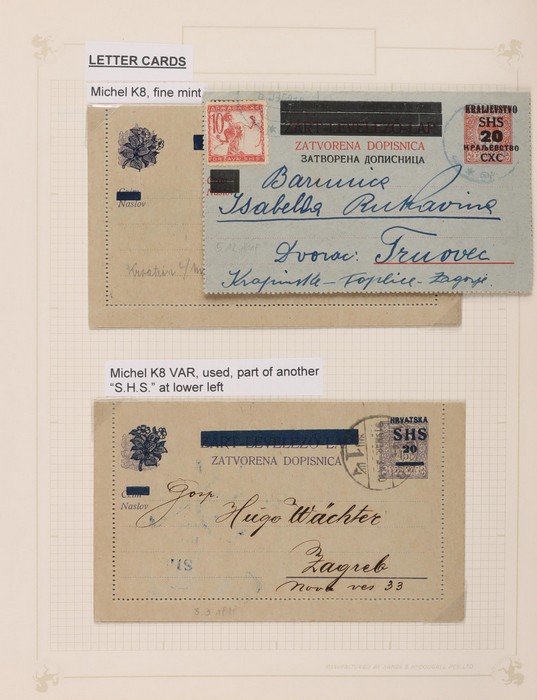 LETTER CARDS
Michel K8, fine mint
ZATVORENA DOPISNICA
ЗАТВОРЕНА ДОПИСНИЦА
KRALJEVSTVO
SHS
20
КРАЉЕВСТВО
СХС
10
Barunica
Isabella Rukavina
Dvorac: Trnovec
Krapinske-Toplice-Zagorje.
Naslov
Kroatien
Michel K8 VAR, used, part of another
“S.H.S.” at lower left
ZÁRT LEVELEZŐ-LAP
ZATVORENA DOPISNICA
HRVATSKA
SHS
20
Naslov
Gosp.
Hugo Wächter
Zagreb
Nova ves 33